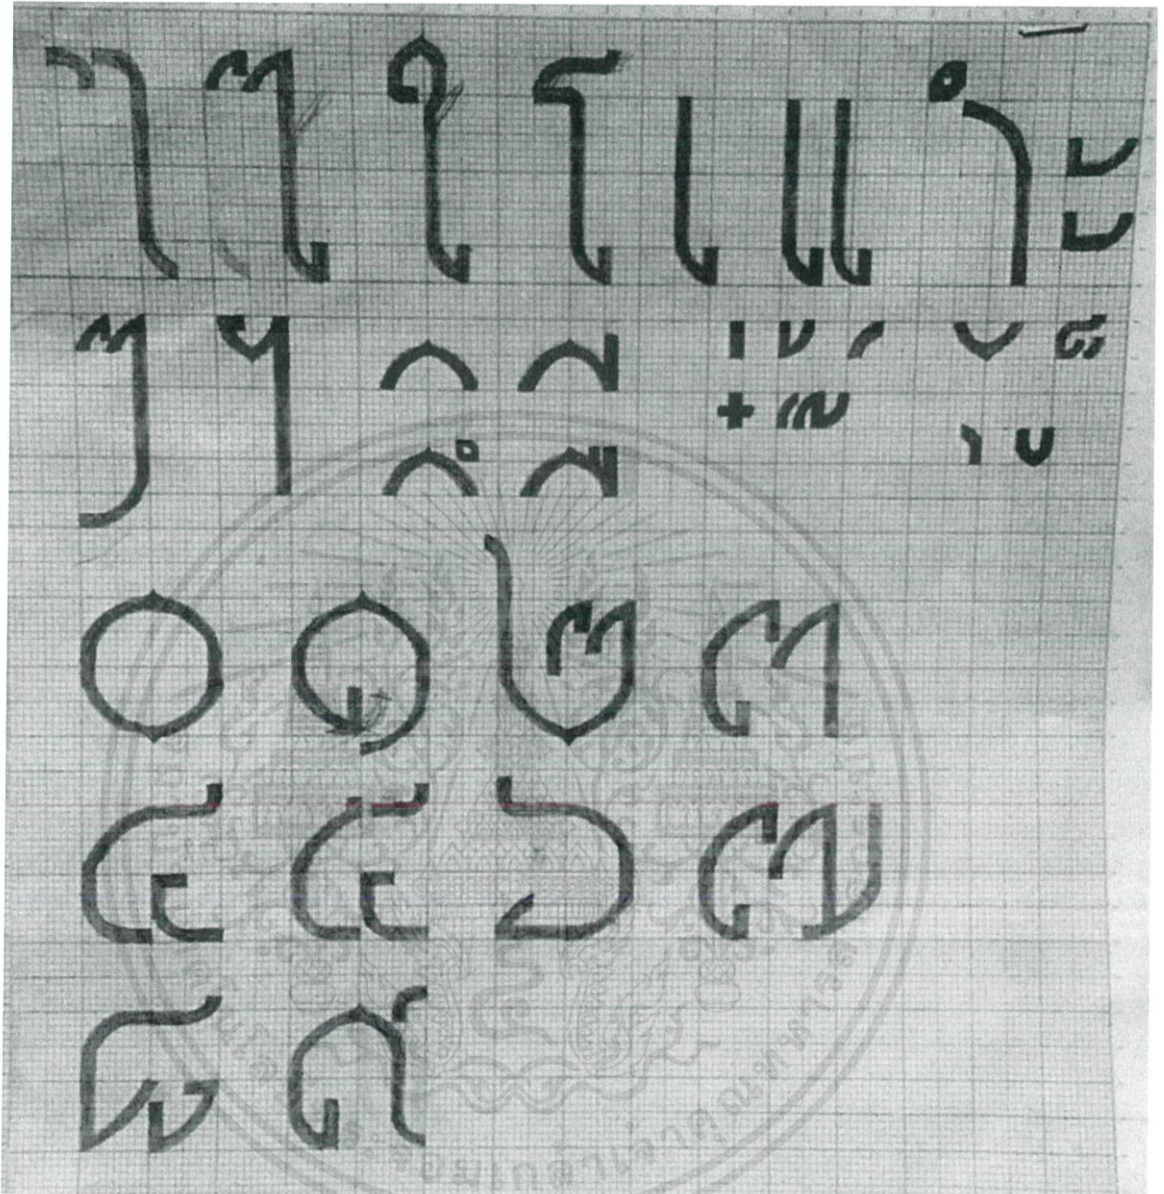 ไ ใ โ เ แ ำ ะ
ๆ ฯ ิ ี ่ ้ ็
๋ ๊
ึ ื ุ ู
๐ ๑ ๒ ๓
๔ ๕ ๖ ๗
๘ ๙